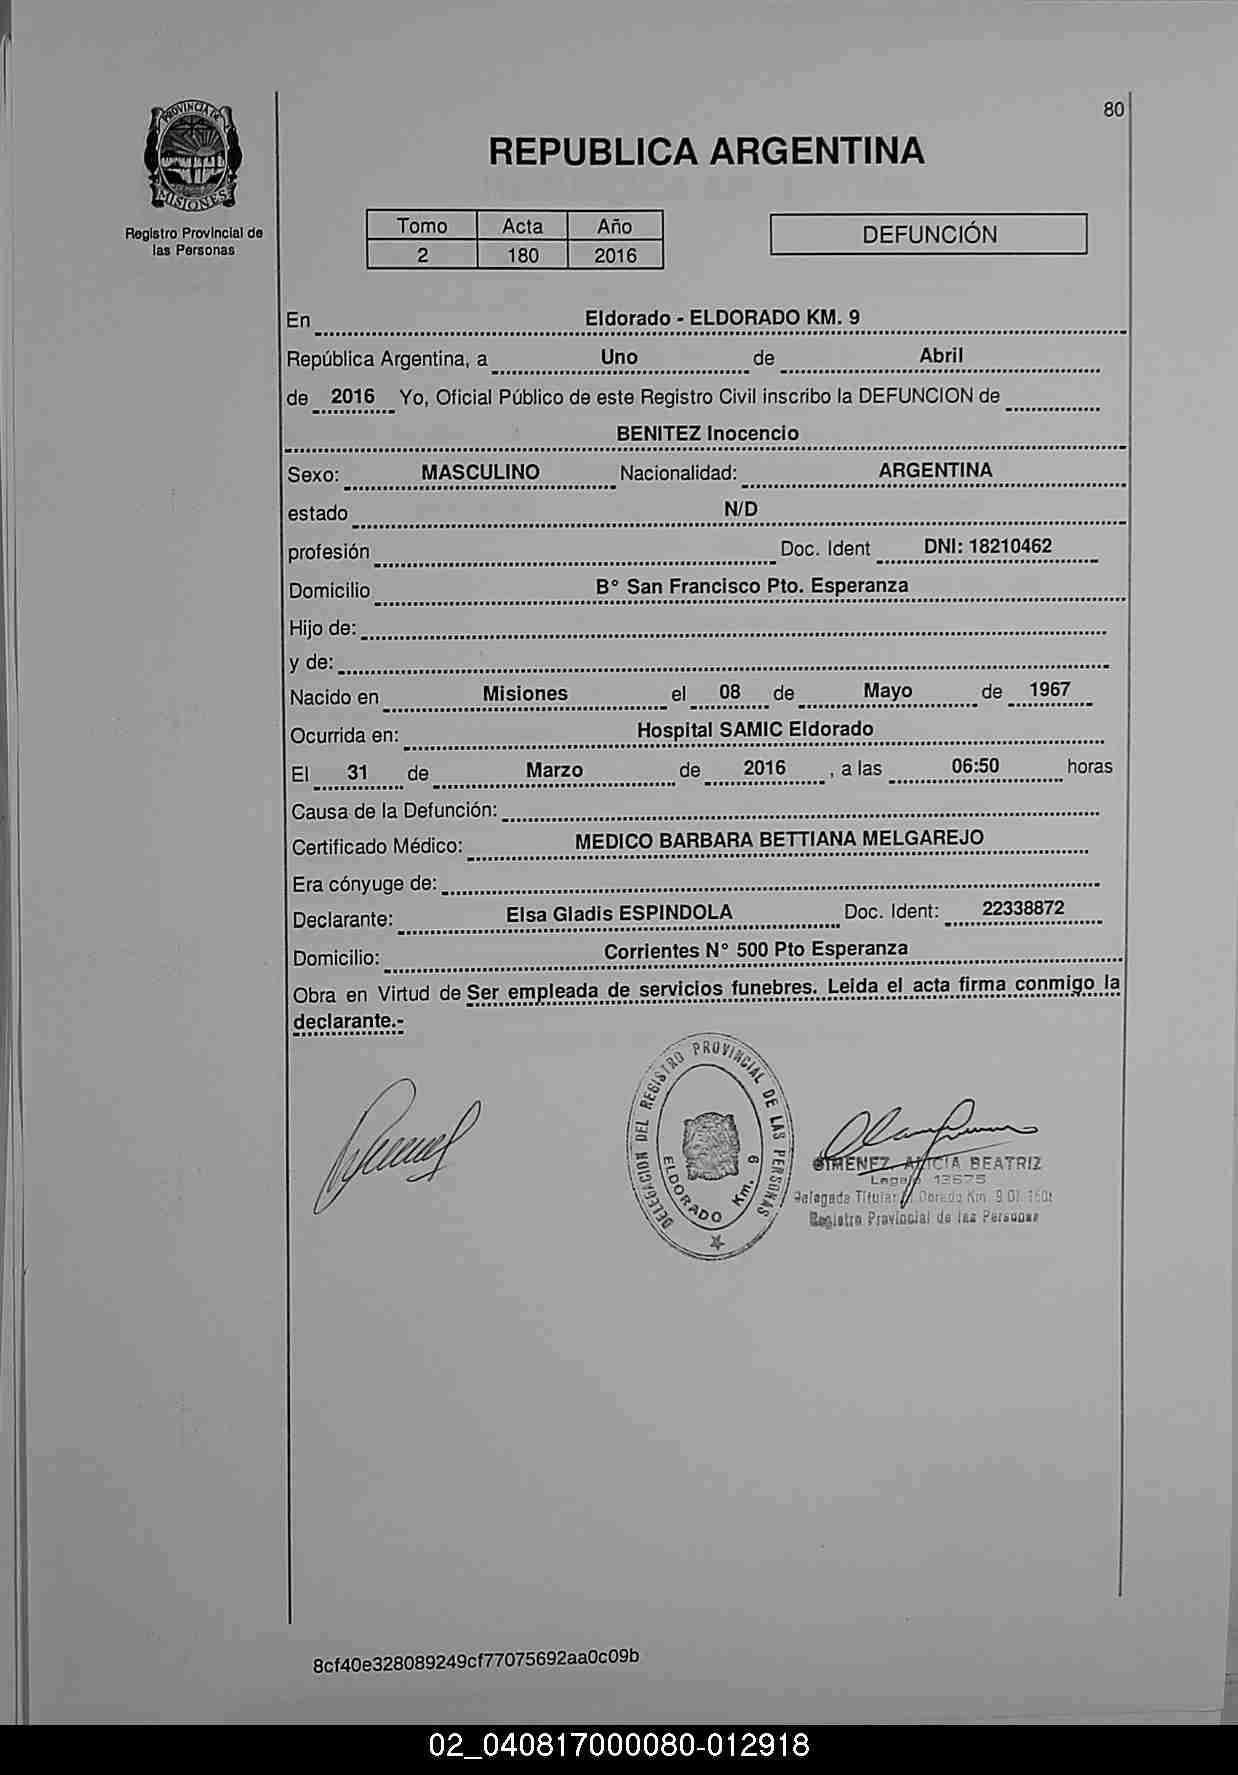 80
PROVINCIA DE
MISIONES
Registro Provincial de
las Personas
REPUBLICA ARGENTINA
Tomo Acta Año
2 180 2016
DEFUNCIÓN
En Eldorado - ELDORADO KM. 9
República Argentina, a Uno de Abril
de 2016 Yo, Oficial Público de este Registro Civil inscribo la DEFUNCION de
BENITEZ Inocencio
Sexo: MASCULINO Nacionalidad: ARGENTINA
estado N/D
profesión Doc. Ident DNI: 18210462
Domicilio B° San Francisco Pto. Esperanza
Hijo de:
y de:
Nacido en Misiones el 08 de Mayo de 1967
Ocurrida en: Hospital SAMIC Eldorado
El 31 de Marzo de 2016 , a las 06:50 horas
Causa de la Defunción:
Certificado Médico: MEDICO BARBARA BETTIANA MELGAREJO
Era cónyuge de:
Declarante: Elsa Gladis ESPINDOLA Doc. Ident: 22338872
Domicilio: Corrientes N° 500 Pto Esperanza
Obra en Virtud de Ser empleada de servicios funebres. Leida el acta firma conmigo la
declarante.-
DELEGACION DEL REGISTRO PROVINCIAL DE LAS PERSONAS
ELDORADO Km. 9
GIMENEZ, ALICIA BEATRIZ
Legajo 13675
Delegada Titular Dorado Km. 9
Registro Provincial de las Personas
8cf40e328089249cf77075692aa0c09b
02_040817000080-012918